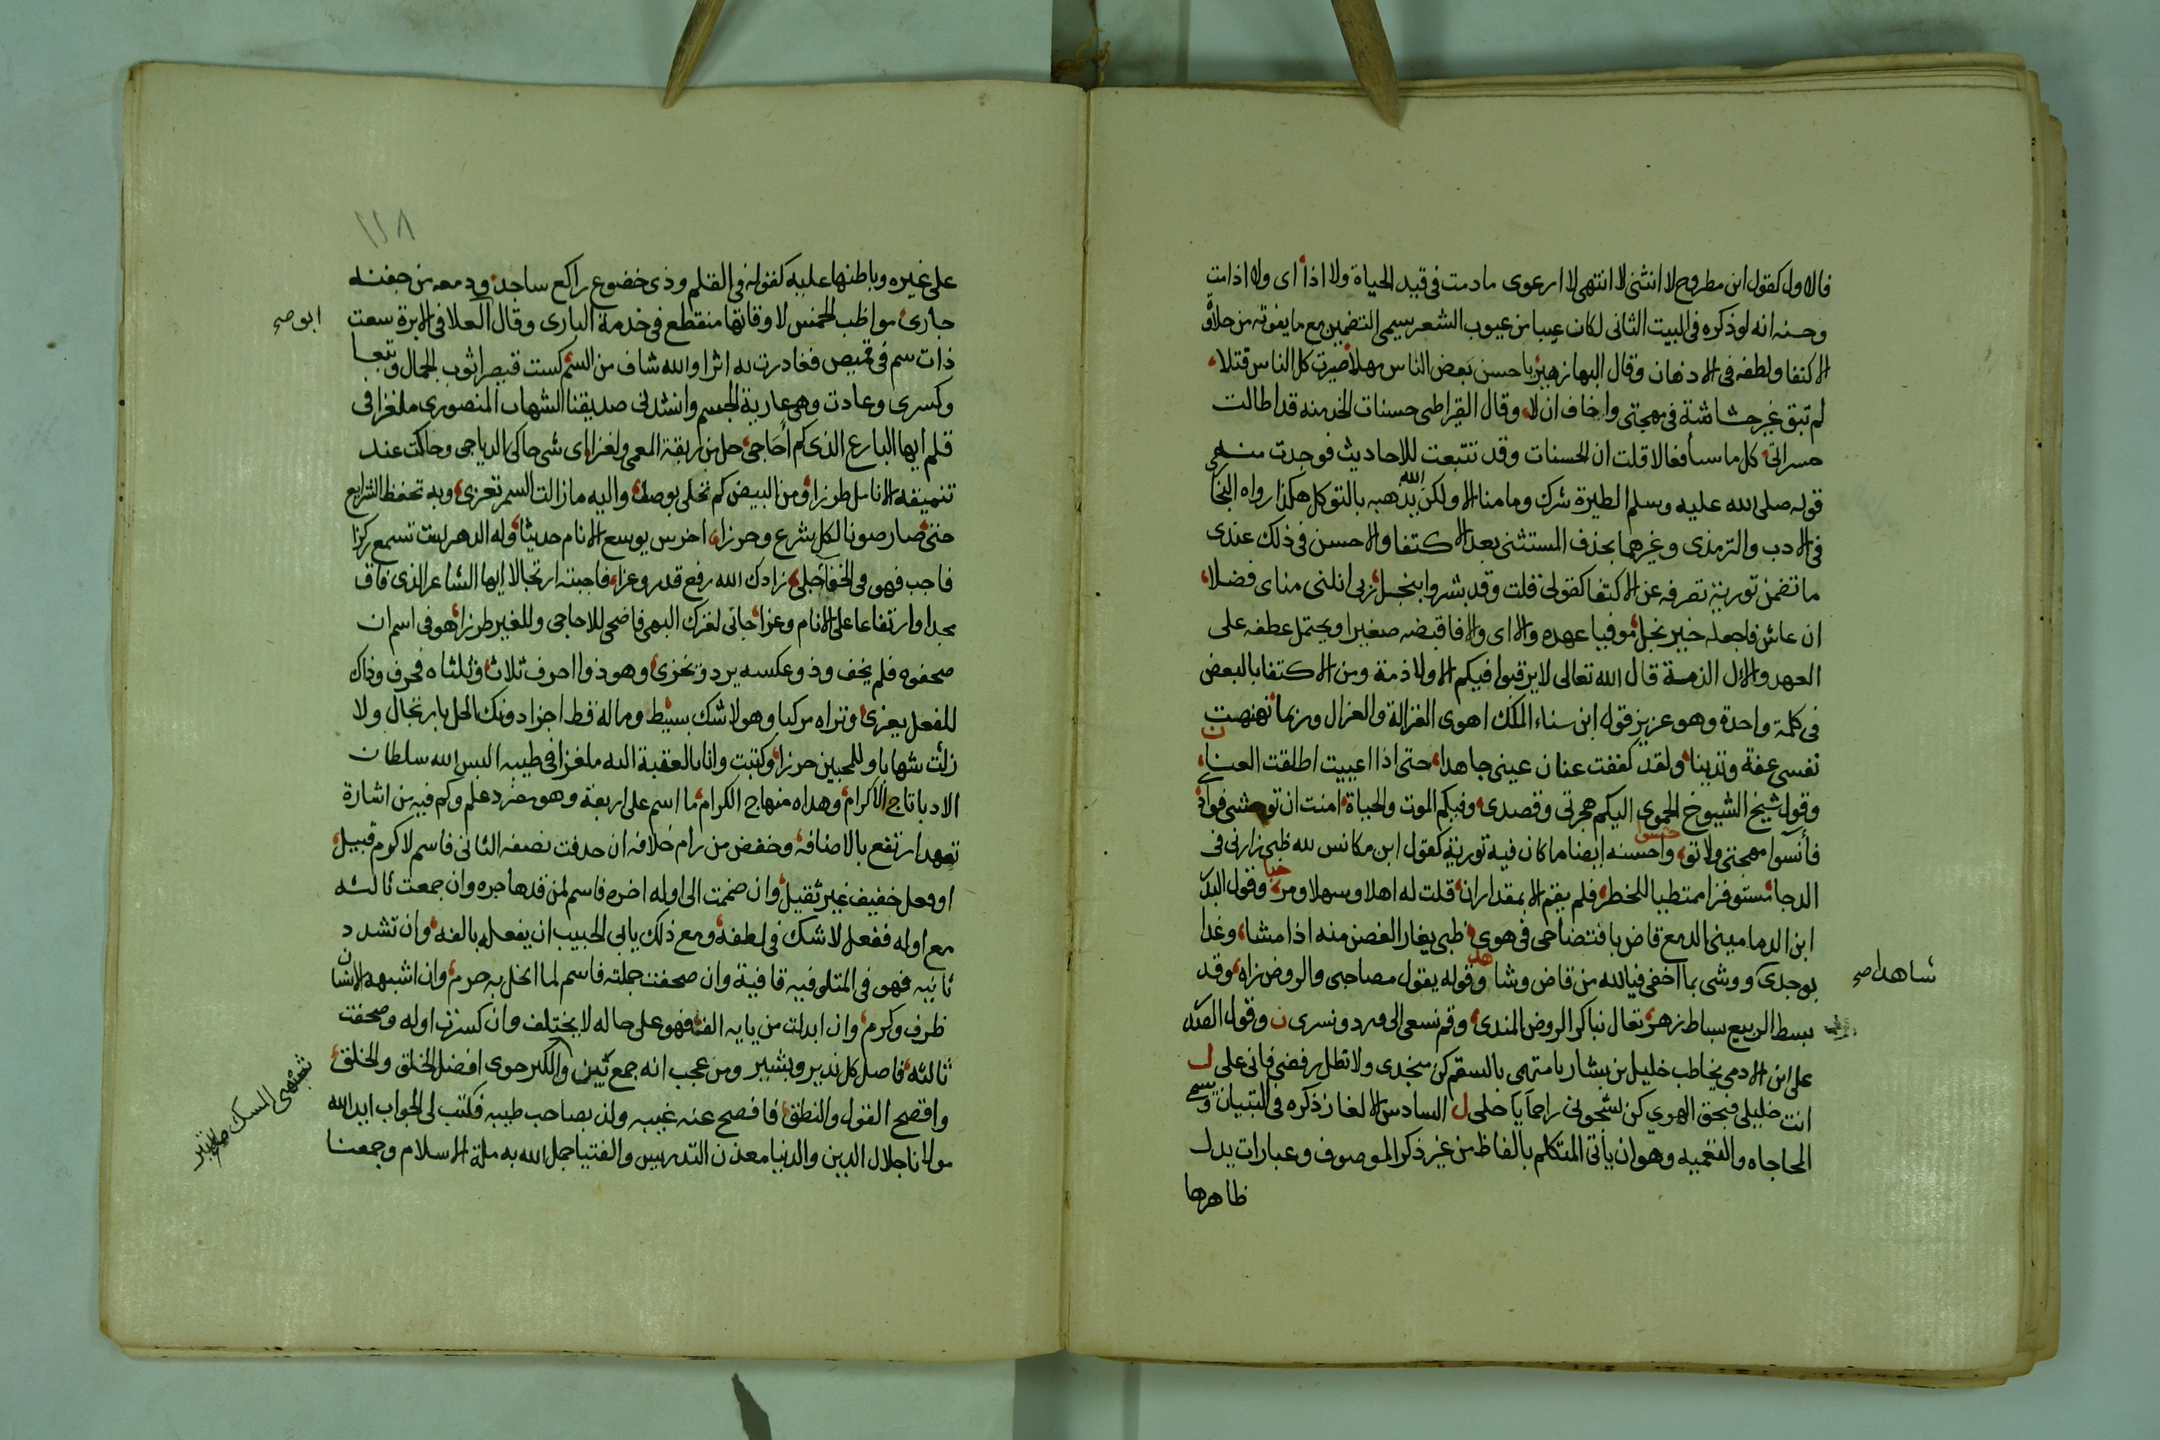 فالاول كقول ابن مطروح لا انثنى لا انتهى لا ارعوى مادمت فى قيد الحياة ولا اذا اى ولا اذا مت
وحسنه انه لو ذكره فى البيت الثانى لكان عيبا من عيوب الشعر يسمى التضمين مع ما يفوته من حلاوة
الاكتفا ولطفه فى الاذهان وقال البها زهير يا حسن بعض الناس مهلا صيرت كل الناس قتلا
لم تبق غير حشاشة فى مهجتى واخاف ان لا وقال القيراطى حسنات الخد منه قد اطالت
حسراتى كل ما ساء فعالا قلت ان الحسنات وقد تتبعت للاحاديث فوجدت منه
قوله صلى الله عليه وسلم الطيرة شرك وما منا الا ولكن الله يذهبه بالتوكل هكذا رواه البخا
فى الادب والترمذى وغيرهما بحذف المستثنى بعد الا كتفا والاحسن فى ذلك عندى
ما تضمن تورية تصرفه عن الاكتفا كقولى قلت وقد بشروا بنجل ربى انلنى مناى فضلا
ان عاش فاجعله خير نجل موفيا عهده والا اى والا فاقبضه صغيرا ويحتمل عطفه على
العهد والال الذمة قال الله تعالى لا يرقبوا فيكم الا ولا ذمة ومن الاكتفا بالبعض
فى كلمة واحدة وهو عزيز قول ابن سناء الملك اهوى الغزالة والغزال وربما نهنهت
نفسى عفة وتدينا ولقد كففت عنان عينى جاهدا حتى اذا اعييت اطلقت العنا
وقول شيخ الشيوخ الحموى اليكم هجرتى وقصدى وفيكم الموت والحياة امنت ان توحشى فوادى
فآنسوا مهجتى ولا تو واحسنه ايضا ما كان فيه تورية كقول ابن مكانس لله ظبى زارنى فى
الدجا مستوفزا ممتطيا للخطر فلم يقم الا بمقدار ان قلت له اهلا وسهلا ومر وقول البدر
ابن الدمامينى الدمع قاض بافتضاحى فى هوى ظبى يغار الغصن منه اذا مشا وغدا
بوجدى وشى بما اخفى فيالله من قاض وشا وقوله يقول مصاحبى والروض زاه وقد
شاهدا صح
بسط الربيع بساط زهر تعال نباكر الروض المندى وقم نسعى الى ورد ونسرى ن وقول الصد
على ابن الادمى يخاطب خليل بن بشار يا متهمى بالسقم كن منجدى ولا تطل رفضى فانى على ل
انت خليلى فبحق الهوى كن لشجونى راحما يا خلى ل السادس الالغاز ذكره فى التبيان ويسمى
المحاجاه والتعميه وهو ان ياتى المتكلم بالفاظ من غير ذكر الموصوف وعبارات يدل
ظاهرها
١١٨
على غيره وباطنها عليه كقوله فى القلم وذى خضوع راكع ساجد ودمعه من جفنه
جارى مواظب الخمس لاوقاتها منقطع فى خدمة البارى وقال العلا فى الابرة سعت
ابو صح
ذات سم فى قميص فغادرت به اثرا والله شاف من السم كست قيصرا ثوب الجمال وتبعا
وكسرى وعادت وهى عارية الجسم وانشدنى صديقنا الشهاب المنصورى ملغزا فى
قلم ايها البارع الذى كم احاجى حل من ربقة المعمى ولغزا اى شى حاكى الدياجى وحاكت عند
تنميقه الانامل طرزا ومن البيض كم تحلى بوصل واليه ما زالت السمر تعزى وبه تحفظ الشرايع
حتى صار صونا لكل شرع وحرزا اخرس يوسع الانام حديثا وله الدهر لست تسمع ركزا
فاجب فهو فى الخفا جلى زادك الله رفع قدر وعزا فاجبته ارتجالا ايها الشاعر الذى فاق
مجدا وارتفاعا على الانام وعزا جانى لغزك البهى فاضحى للاحاجى وللغير طرزا هو فى اسم ان
صحفوه فلم يخف وذو عكسه يرد ويخزى وهو ذو احرف ثلاث وثلثاه محرف وذاك
للفعل يعزى وتراه مركبا وهو لا شك بسيط وماله قط اجزا دونك الحل بارتجال ولا
زلت شهابا وللمحبين حرزا وكتبت وانا بالعقبة اليه ملغزا فى طيبه البس الله سلطان
الادبا تاج الاكرام وهداه منهاج الكرام ما اسم على اربعة وهو مفرد علم وكم فيه من اشارة
تعهد ارتفع بالاضافه وخفض من رام خلافه ان حذفت نصفه الثانى فاسم لاكرم قبيل
او فعل خفيف غير ثقيل وان ضممت الى اوله اخره فاسم لمن قد هاجره وان جمعت ثالثه
مع اوله ففعل لا شك فى لطفه ومع ذلك يابى الحبيب ان يفعله بالفه وان تشدد
ثانيه فهو فى المتلو فيه قافية وان صحفت جملته فاسم لما النخل به حرم وان اشبهه الانسان
ظرف وكرم وان ابدلت من يايه الف فهو على حاله لا يختلف وان كسرت اوله وصحفت
ثالثه فاصل كل نذير وبشير ومن عجب انه جمع ثمين والكبر حوى افضل الخلق والخلق
وافصح القول والنطق فافصح عنه غيبه ولذ بصاحب طيبه فكتب لى الجواب ايد الله
مولانا جلال الدين والدنيا معدن التدريس والفتيا جمل الله به ملة الاسلام وجمعنا